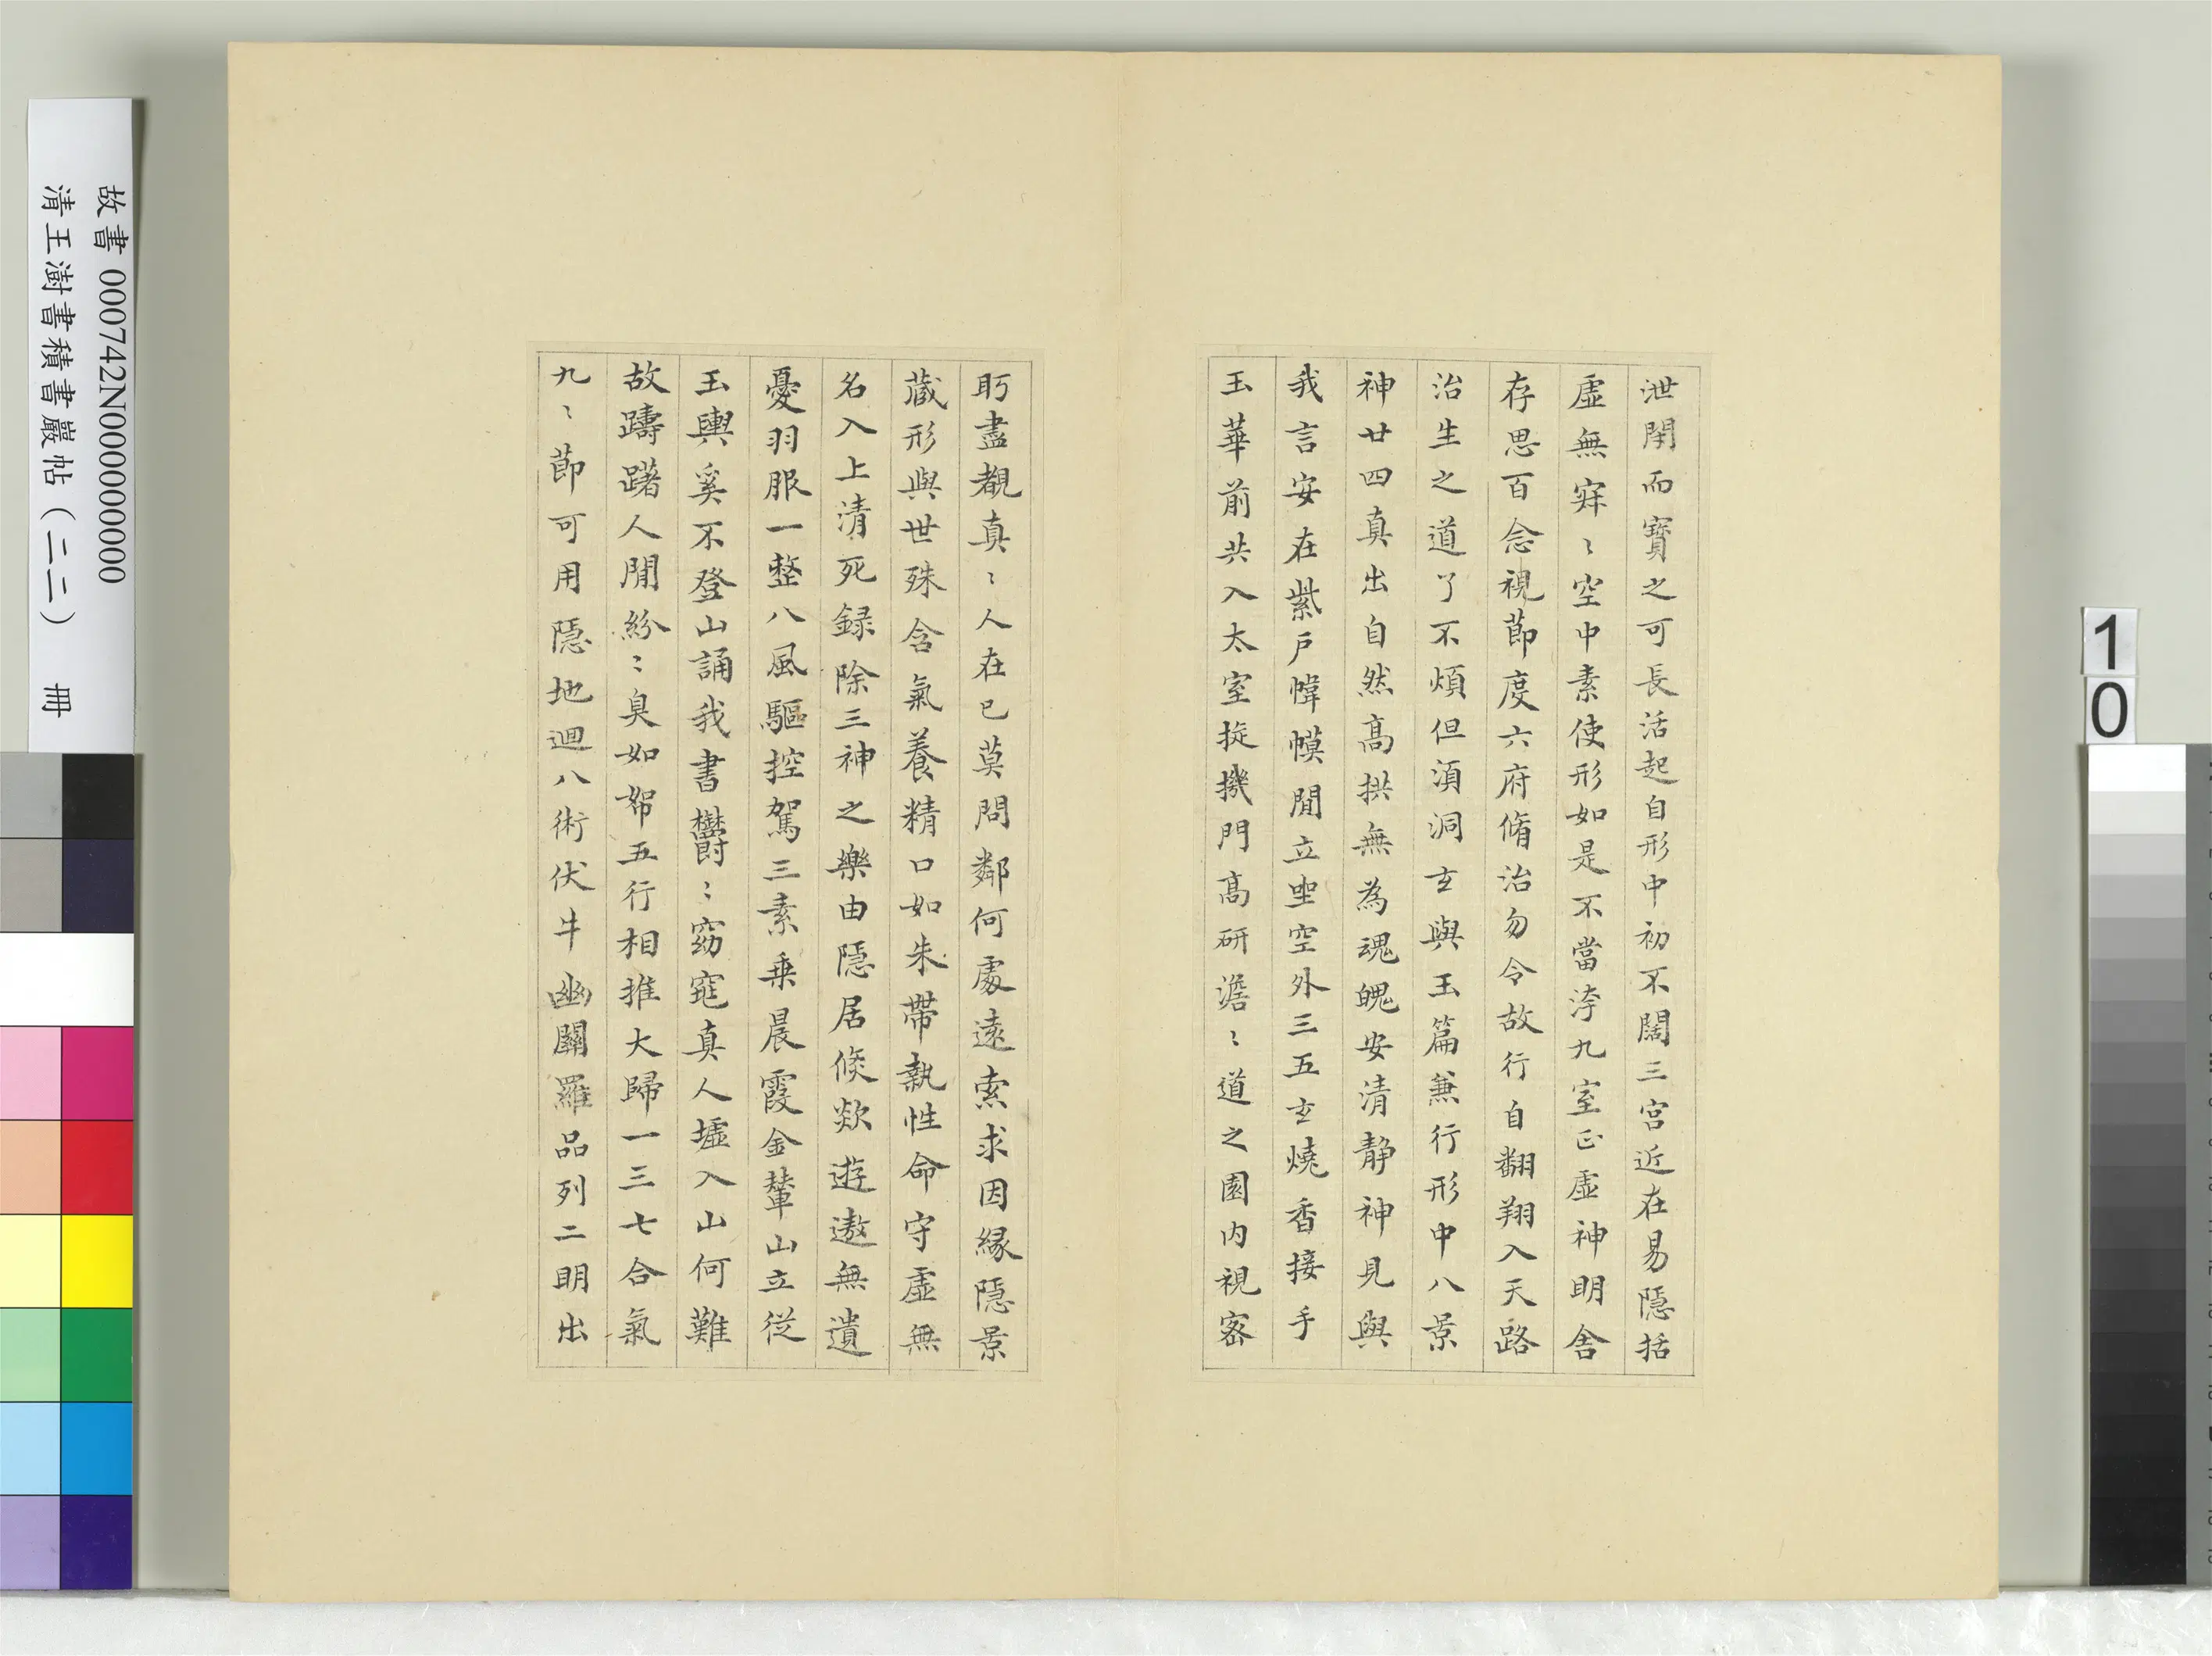 故書 000742N000000000
清王澍書積書巖帖（二二） 冊
10
泄閉而寶之可長活起自形中初不闊三宮近在易隱括
虛無寂〻空中素使形如是不當洿九室正虛神明舍
存思百念視節度六府脩治勿令故行自翱翔入天路
治生之道了不煩但湏洞玄與玉篇兼行形中八景
神廿四真出自然高拱無為魂魄安清静神見與
我言安在紫戶幃幙閒立坐空外三五玄燒香接手
玉華前共入太室㨁機門高研澹〻道之園内視密
盼盡覩真〻人在已莫問鄰何處遠索求因縁隱景
蔵形與世殊含氣養精口如朱帶執性命守虛無
名入上清死録除三神之樂由隱居倏欻遊遨無遺
憂羽服一整八風驅控駕三素乗晨霞金輦山立従
玉輿奚不登山誦我書鬱〻窈窕真人墟入山何難
故躊躇人閒紛〻臭如帤五行相推大歸一三七合氣
九〻節可用隱地迴八術伏牛幽闕羅品列二明出